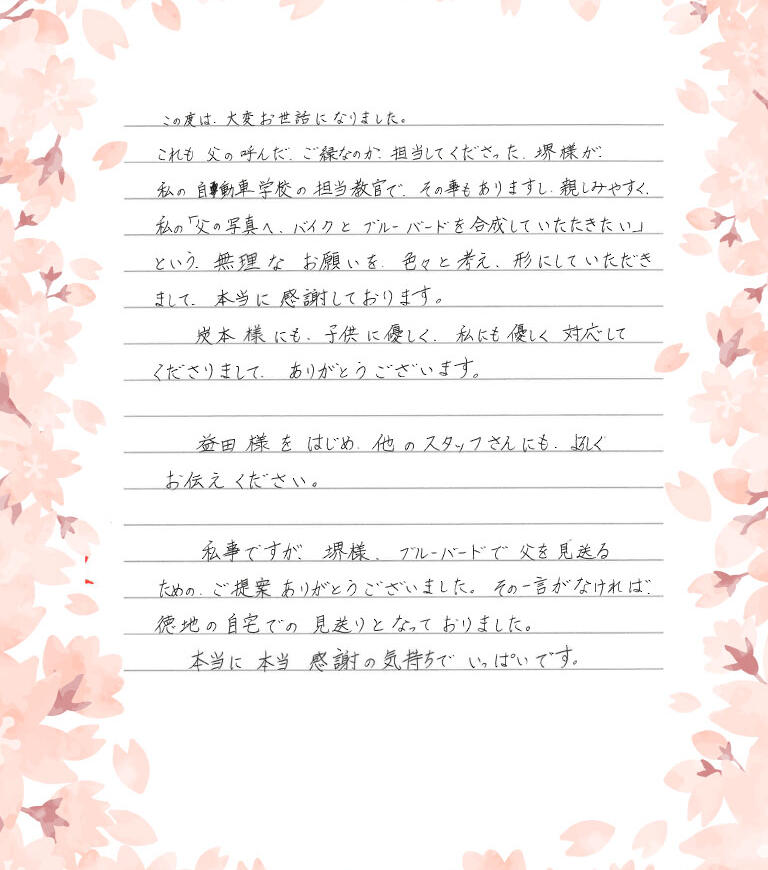 この度は、大変お世話になりました。
これも 父の呼んだ、ご縁なのか、担当してくださった、堺様が、
私の 自動車学校の 担当教官で、その事もありますし、親しみやすく、
私の「父の写真へ、バイクと ブルーバードを合成していたたきたい」
という、無理な お願いを、色々と考え、形にしていただき
まして、本当に 感謝しております。
炭本様にも、子供に優しく、私にも優しく 対応して
くださりまして、ありがとうございます。
益田様を はじめ、他のスタッフさんにも、よろしく
お伝えください。
私事ですが、堺様、ブルーバードで 父を見送る
ための、ご提案 ありがとうございました。その一言がなければ、
徳地の自宅での 見送りとなって おりました。
本当に 本当 感謝の気持ちで いっぱいです。